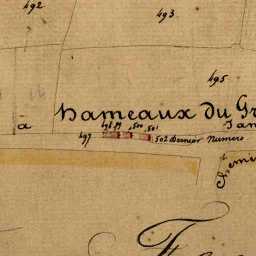 492
493
495
Hameaux du Gr
à
497
498
499
500
501
502 dernier Numéro
Chemi